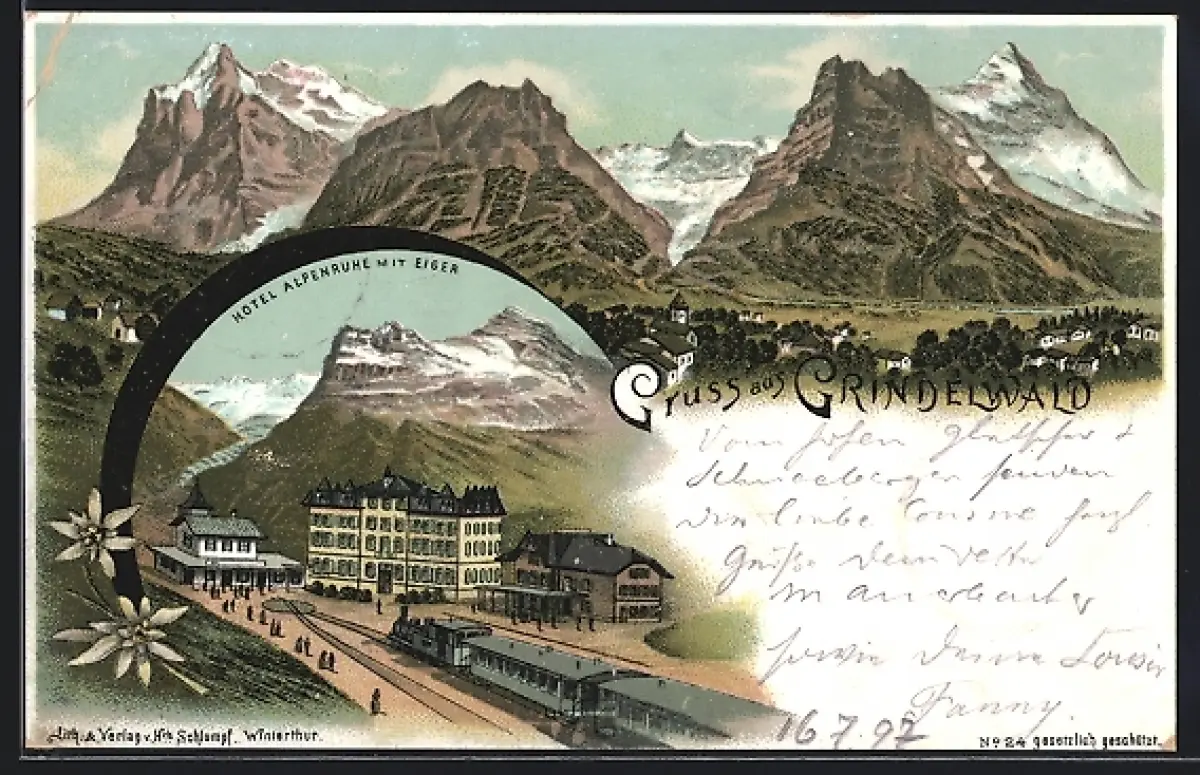 HOTEL ALPENRUHE MIT EIGER
GRUSS aus GRINDELWALD
Vom hohen Gletscher &
Schneeberger senden
Dir liebe Cousine herzl.
Grüße Dein Vetter
sowie Deine Cousin
Fanny.
16.7.97
Lith. & Verlag v. Hch. Schlumpf. Winterthur.
No 24 gesetzlich geschützt.